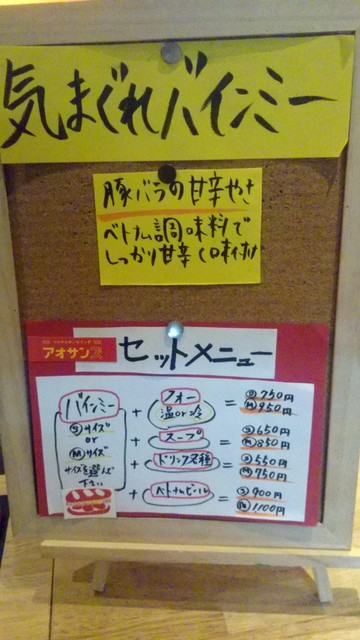 気まぐれバインミー
豚バラの甘辛やき
ベトナム調味料で
しっかり甘辛く味付け
アオサンズ
セットメニュー
バインミー
Ⓢサイズ
or
Ⓜサイズ
サイズを選んで
下さい
+ フォー 温or冷 = Ⓢ750円 Ⓜ950円
+ スープ = Ⓢ650円 Ⓜ850円
+ ドリンク各種 = Ⓢ550円 Ⓜ750円
+ ベトナムビール = Ⓢ900円 Ⓜ1100円